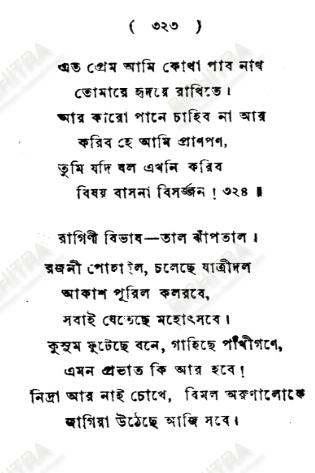 ( ৩২৩ )
এত প্রেম আমি কোথা পাব নাথ
তোমারে হৃদয়ে রাখিতে।
আর কারো পানে চাহিব না আর
করিব হে আমি প্রাণপণ,
তুমি যদি বল এখনি করিব
বিষয় বাসনা বিসর্জ্জন ! ৩২৪ ॥
রাগিণী বিভাষ—তাল ঝাঁপতাল।
রজনী পোহাইল, চলেছে যাত্রীদল
আকাশ পূরিল কলরবে,
সবাই যেতেছে মহোৎসবে।
কুসুম ফুটেছে বনে, গাহিছে পাখীগণে,
এমন প্রভাত কি আর হবে!
নিদ্রা আর নাই চোখে, বিমল অরুণালোকে
জাগিয়া উঠেছে আজি সবে।